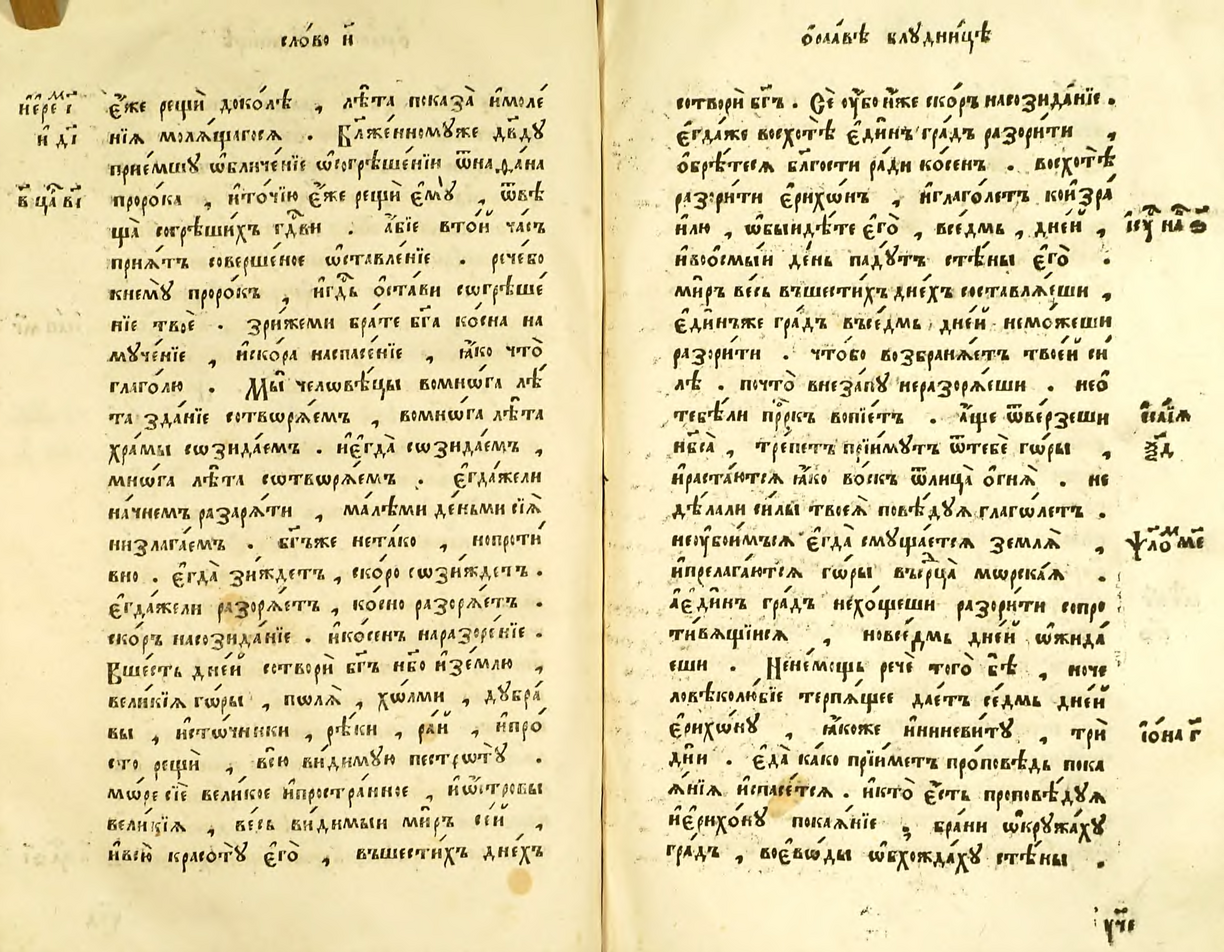 сло́во и҃
і҆ере́м і҃
и҆ д҃і
в҃ ца́ в҃і
є҆́же рещѝ доко́лѣ , лѣ̑та показа̀ и҆моле́
нїѧ молѧ́щагосѧ . Бл҃же́нномꙋже дв҃дꙋ
прїе́мшꙋ ѡ҆бличе́нїе ѡ҆согрѣше́нїи ѿнаѳа́на
проро́ка , и҆то́чїю є҆́же рещѝ є҆мꙋ̀ , ѿвѣ
ща̀ согрѣши́хъ гд҇ви . а҆́бїе вто́й ча́съ
прїѧ́тъ соверше́ное ѡ҆ставле́нїе . рече́бо
кнемꙋ̀ проро́къ , и҆гд҇ь ѡ҆ста́ви сѡгрѣше́
нїе твоѐ . зри́жеми бра́те бг҃а ко́сна на
мꙋче́нїе , и҆ско́ра наспасе́нїе , ꙗ҆́ко что̀
глаго́лю . Мы̀ человѣ́цы вомнѡ́га лѣ̑
та зда́нїе сотворѧ́емъ , вомнѡ́га лѣ̑та
хра́мы сѡзида́емъ . и҆є҆гда̀ сѡзида́емъ ,
мнѡ́га лѣ̑та сѡтворѧ́емъ . є҆гда́жели
на́чнемъ разарѧ́ти , ма́лѣми де́ньми сїѧ̀
низлага́емъ . бг҃ъже нета́ко , нопроти́
вно . є҆гда̀ зи́ждетъ , ско́ро сѡзи́ждетъ .
є҆гда́жели разорѧ́етъ , ко́сно разорѧ́етъ .
ско́ръ насозида́нїе . и҆ко́сенъ наразоре́нїе .
Вше́сть дне́й сотворѝ бг҃ъ нб҃о и҆зе́млю ,
вели́кїѧ го́ры , полѧ̀ , хо́лми , дꙋбра́
вы , и҆сто́чники , рѣ́ки , ра́й , и҆про́
сто рещѝ , всю̀ ви́димꙋю пестротꙋ̀ .
мо́ре сїѐ вели́кое и҆простра́нное , и҆ѻ҆́стровы
вели́кїѧ , ве́сь ви́димый ми́ръ се́й ,
и҆всю̀ красо́тꙋ є҆гѡ̀ , въшести́хъ дне́хъ
ѡ҆ра́авѣ блꙋдни́цѣ
сотворѝ бг҃ъ . Сѐ ᲂу҆́бо и҆́же ско́ръ насозида́нїе .
є҆гда́же восхотѣ̀ є҆ди́нъ гра́дъ разори́ти ,
ѡ҆брѣ́тесѧ бл҃гости ра́ди ко́сенъ . восхотѣ̀
разори́ти є҆рихѡ́нъ , и҆глаго́летъ коі҆зра́
илю , ѡ҆бы́идѣте є҆го̀ , все́дмь , дне́й ,
и҆воосмы́й де́нь падꙋ́тъ стѣ́ны є҆го̀ .
ми́ръ ве́сь въшести́хъ дне́хъ составлѧ́еши ,
є҆ди́нъже гра́дъ въсе́дмь дне́й немо́жеши
разори́ти . что́бо возбранѧ́етъ твое́й си́
лѣ . почто̀ внеза́пꙋ неразорѧ́еши . нео҆
тебѣ́ли прⷪ҇ркъ вопїе́тъ . а҆́ще ѿве́рзеши
нб҃са̀ , тре́петъ прїи́мꙋтъ ѿтебѐ го́ры ,
и҆раста́ютсѧ ꙗ҆́ко во́скъ ѿлица̀ ѻ҆гнѧ̀ . не
дѣ́лали си́лы твоеѧ̀ повѣ́дꙋѧ глаго́летъ .
неᲂу҆бои́мъсѧ є҆гда̀ смꙋща́етсѧ землѧ̀ ,
и҆прелага́ютсѧ го́ры въсрⷣца̀ морска́ѧ .
а҆є҆ди́нъ гра́дъ нехо́щеши разори́ти сопро
ти́вѧщїисѧ , новсе́дмь дне́й ѡ҆жида́
еши . Нене́мощь речѐ того̀ бѣ̀ , ноче
ловѣколю́бїе терпѧ́щее дае́тъ се́дмь дне́й
є҆рихо́нꙋ , ꙗ҆́коже и҆ниневи́тꙋ , трѝ
дни̑ . є҆да̀ ка́ко прїи́метъ про́повѣдь пока
ѧ́нїѧ и҆спасе́тсѧ . и҆кто̀ є҆́сть проповѣ́дꙋѧ
и҆є҆рихо́нꙋ покаѧ́нїе , бра́ни ѡ҆крꙋжа́хꙋ
гра́дъ , воево́ды ѡ҆бхожда́хꙋ стѣ́ны .
і҆сꙋ́ на́в ѕ҃
и҆са́їѧ
ѯ҃д
ѱало́м м҃е
і҆ѡ́на г҃
ᲂу҆че